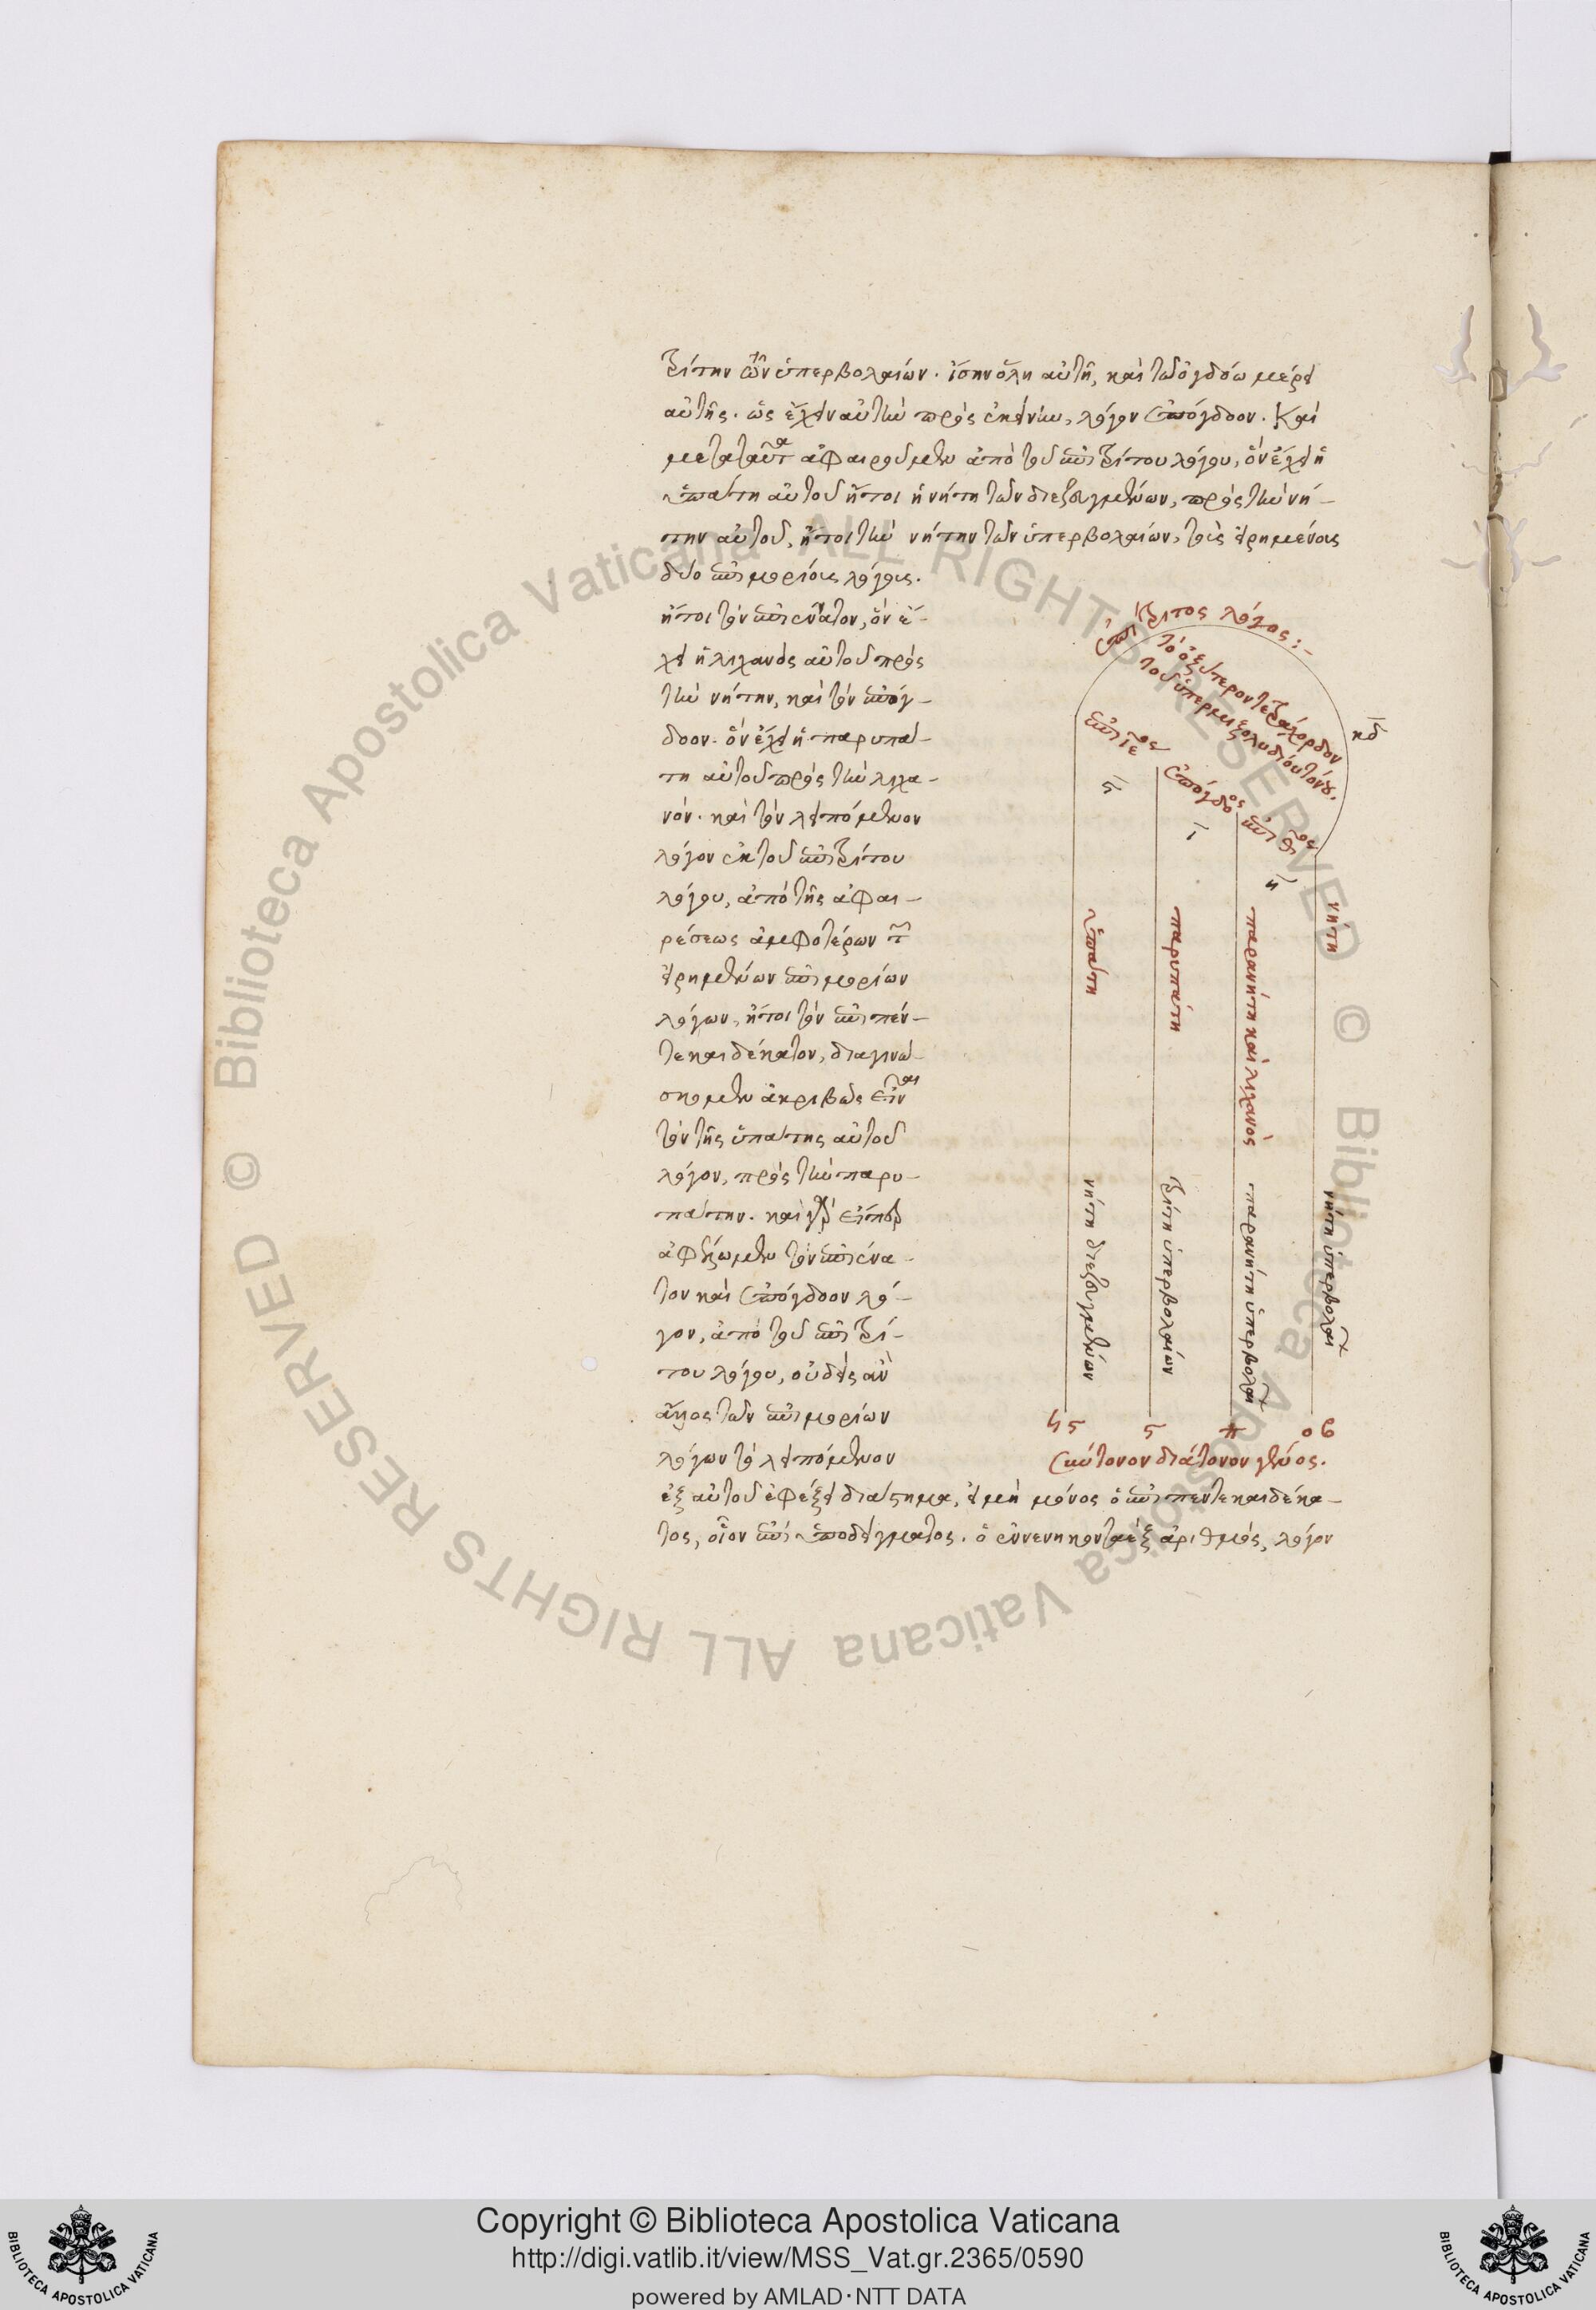 τρίτην τῶν ὑπερβολαίων. ἴσην ὅλη αὐτῆ, καὶ τῶ ὀγδόω μέρει
αὐτῆς. ὡς ἔχειν αὐτὴν πρὸς ἐκείνην, λόγον ἐπόγδοον. Καὶ
μετὰ ταῦτα ἀφαιροῦμεν ἀπὸ τοῦ ἐπιτρίτου λόγου, ὃν ἔχει ἡ
ὑπάτη αὐτοῦ ἤτοι ἡ νήτη τῶν διεζευγμένων, πρὸς τὴν νή-
την αὐτοῦ, ἤτοι τὴν νήτην τῶν ὑπερβολαίων, τοῖς εἰρημένοις
δύο ἐπιμορίοις λόγοις.
ἤτοι τὸν ἐπιένατον, ὃν ἔ-
χει ἡ λιχανὸς αὐτοῦ πρὸς
τὴν νήτην, καὶ τὸν ἐπόγ-
δοον. ὃν ἔχει ἡ παρυπά-
τη αὐτοῦ πρὸς τὴν λιχα-
νόν. καὶ τὸν λειπόμενον
λόγον ἐκ τοῦ ἐπιτρίτου
λόγου, ἀπὸ τῆς ἀφαι-
ρέσεως ἀμφοτέρων τῶν
εἰρημένων ἐπιμορίων
λόγων, ἤτοι τὸν ἐπιπεν-
τεκαιδέκατον, διαγινώ-
σκομεν ἀκριβῶς εἶναι
τὸν τῆς ὑπάτης αὐτοῦ
λόγον, πρὸς τὴν παρυ-
πάτην. καὶ γὰρ εἴπερ
ἀφέλωμεν τὸν ἐπιένα-
τον καὶ ἐπόγδοον λό-
γον, ἀπὸ τοῦ ἐπιτρί-
του λόγου, οὐδεὶς ἂν
ἄλλος τῶν ἐπιμορίων
λόγων τὸ λειπόμενον
ἐξ αὐτοῦ ἐφέξει διάστημα, εἰ μὴ μόνος ὁ ἐπιπεντεκαιδέκα-
τος, οἷον ἐπὶ ὑποδείγματος. ὁ ἐννενηκονταὲξ ἀριθμὸς, λόγον
ἐπίτριτος λόγος:-
τὸ ὀξύτερον τετράχορδον
τοῦ ὑπερμιξολυδίου τόνου.
κδ
ἐπιιεος
ἐπόγδοος
ἐπιθος
ϛ
ι
η
ὑπάτη
παρυπάτη
παρανήτη καὶ λιχανὸς
νήτη
νήτη διεζευγμένων
τρίτη ὑπερβολαίων
παρανήτη ὑπερβολαί
νήτη ὑπερβολαί
ϟϛ ϛ π οβ
σύντονον διάτονον γένος.
Copyright © Biblioteca Apostolica Vaticana
http://digi.vatlib.it/view/MSS_Vat.gr.2365/0590
powered by AMLAD·NTT DATA
BIBLIOTECA APOSTOLICA VATICANA
BIBLIOTECA APOSTOLICA VATICANA
© Biblioteca Apostolica Vaticana ALL RIGHTS RESERVED © Biblioteca Apostolica Vaticana ALL RIGHTS RESERVED